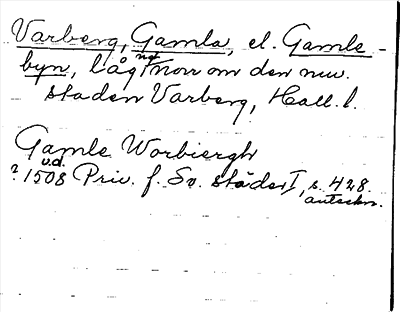 Varberg, Gamla, el. Gamle-
byn, låg ng norr om den nuv.
staden Varberg, Hall. l.
Gamle Worbiergh
u.d.
? 1508 Priv. f. Sv. städer I, s. 428.
anteckn.